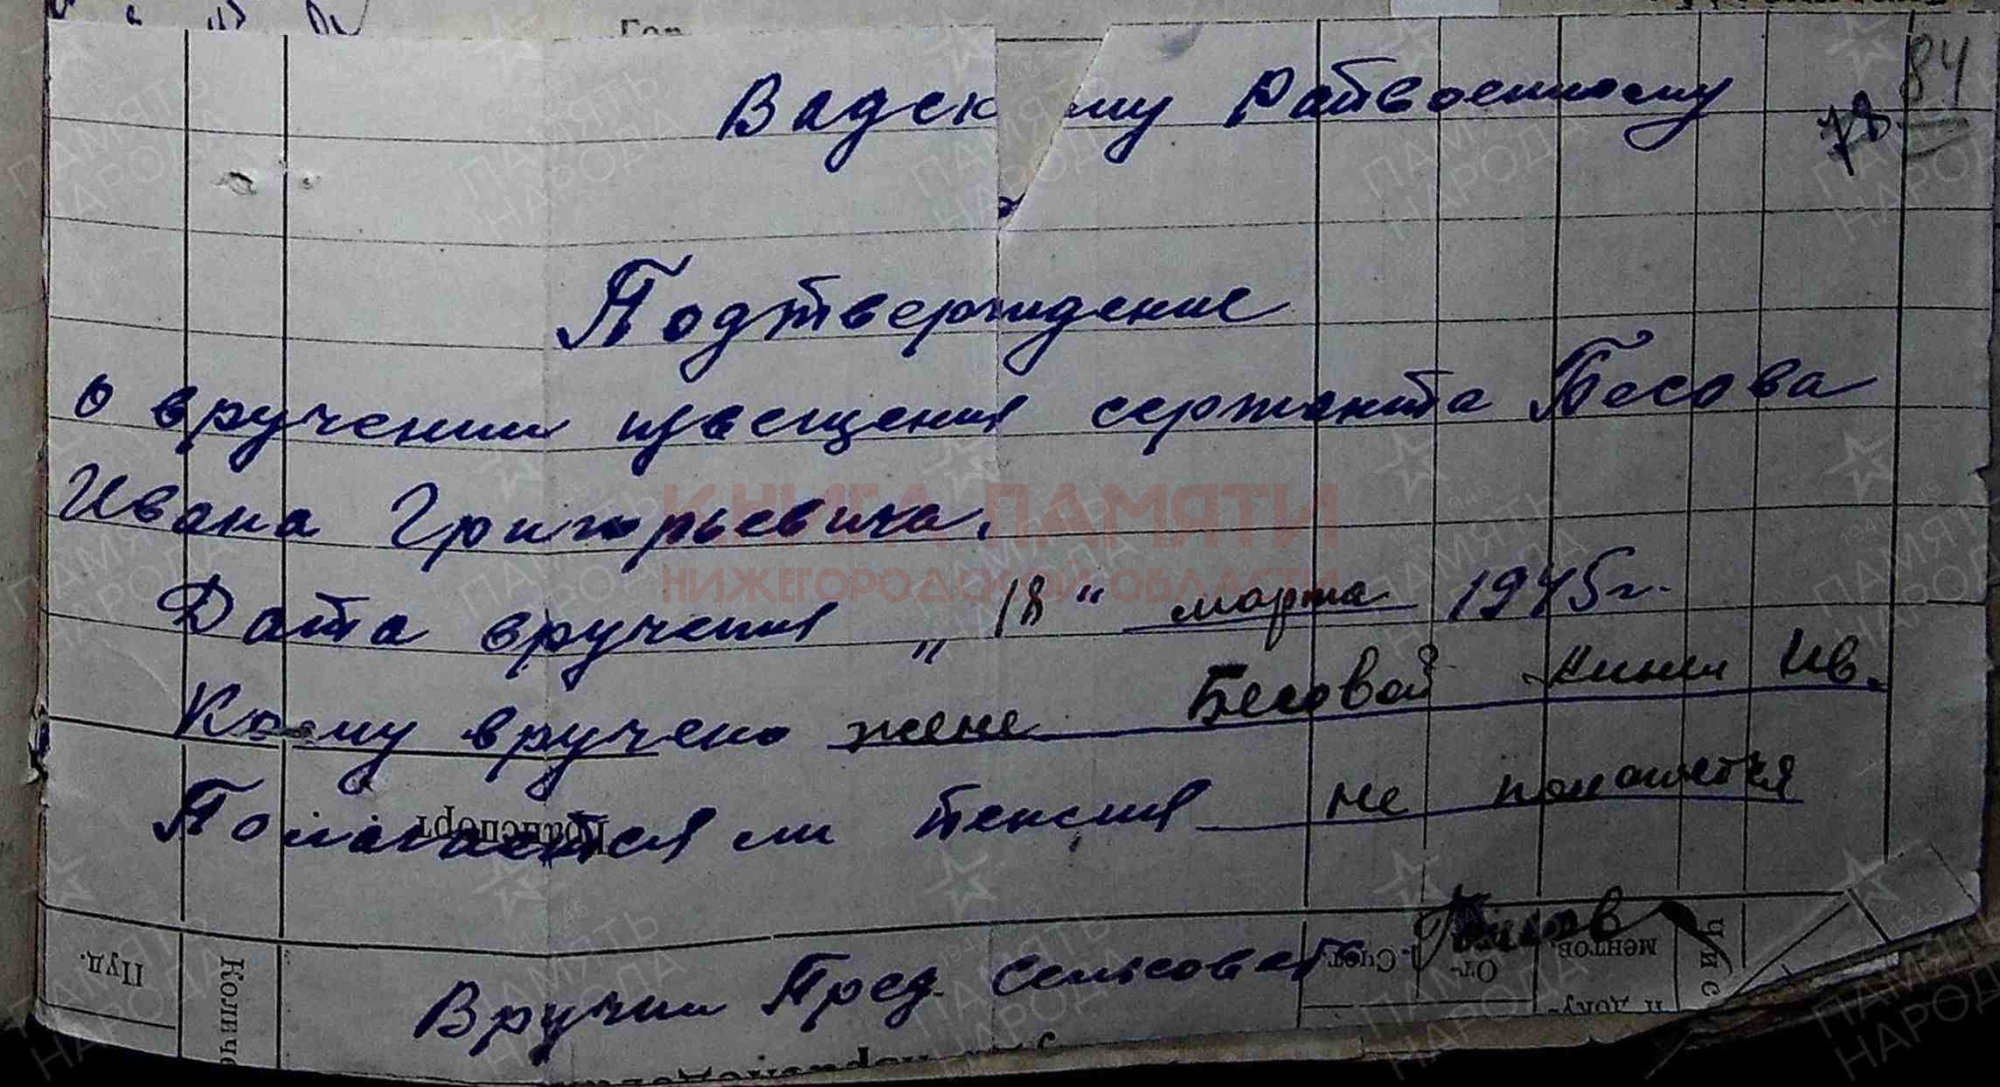 Гор
Вадск му Райвоенному
84
78
Подтверждение
о вручении извещения сержанта Бесова
Ивана Григорьевича.
КНИГА ПАМЯТИ
НИЖЕГОРОДСКОЙ ОБЛАСТИ
Дата вручения „18“ марта 1945 г.
Кому вручено жене Бесовой Ив.
Полагается ли пенсия не полагается
Транспорт
Вручил Пред. сельсовета
Пуд.
Количе
Счет.
От-
ментов.
и доку-
чис
ПАМЯТЬ НАРОДА